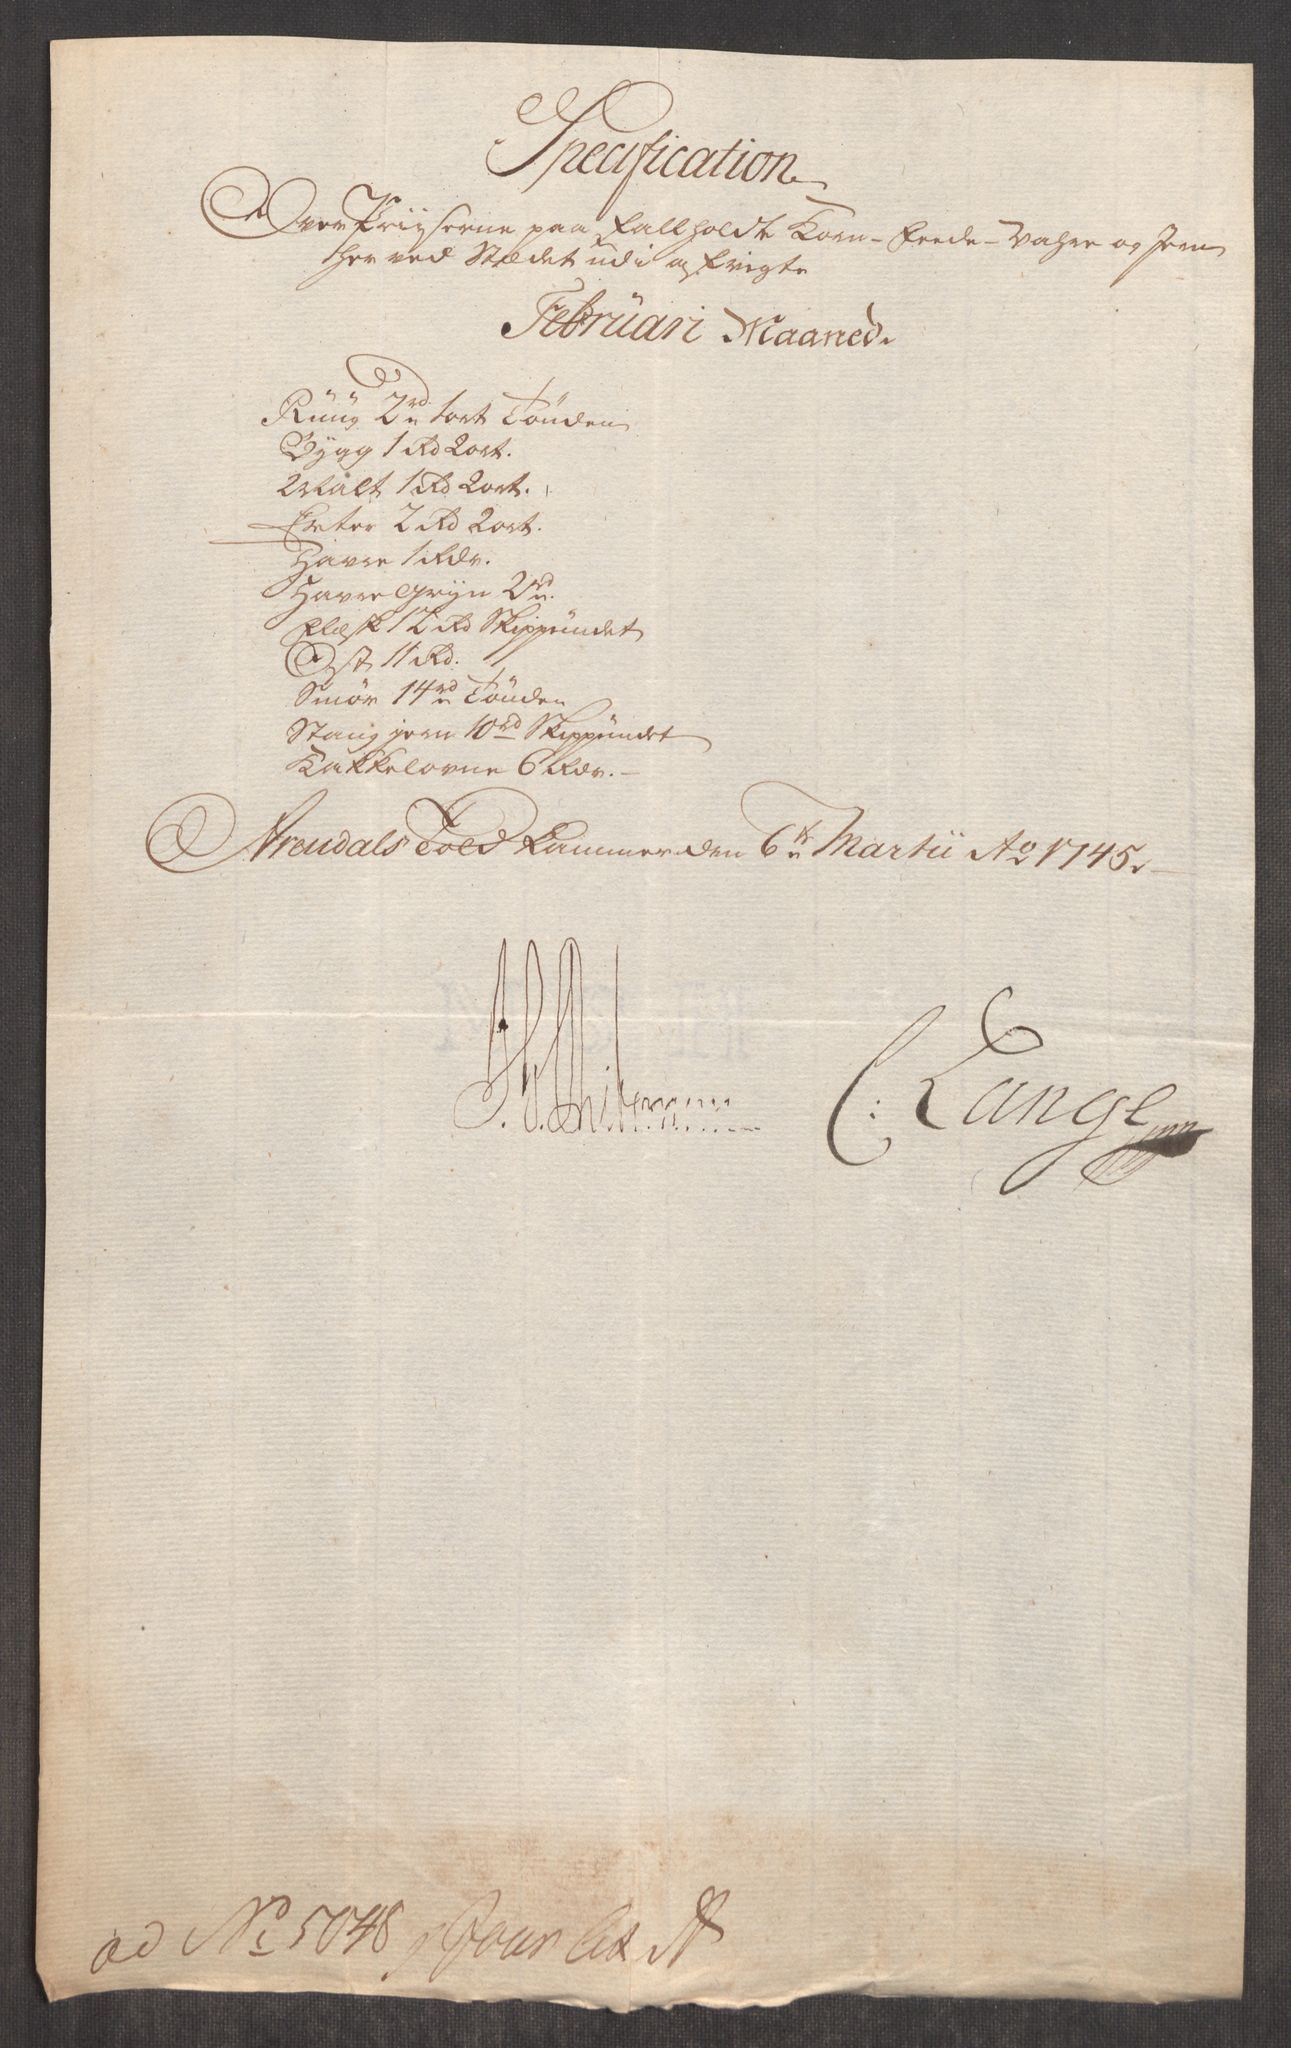 Specification
Over Priiserne paa fallholdte Korn- Feede- Vahre og Jern
her ved Stædet udi afvigte
Februari Maaned.
Rüüg 2 rd 1 ort Tönden
Bÿgg 1 Rd 2 ort.
Malt 1 Rd 2 ort.
Erter 2 Rd 2 ort.
Havre 1 Rdr.
Havre grÿn 2 rd.
Flæsk 12 Rd Skippündet
Ost 11 Rd.
Smör 14 rd Tönden
Stang jern 10 rd Skippündet
Kakkelovne 6 Rdr.
Arendals Told Kammer den 6te Martii Ao 1745.
C: Lange
ad No 5048 Jour Lit A